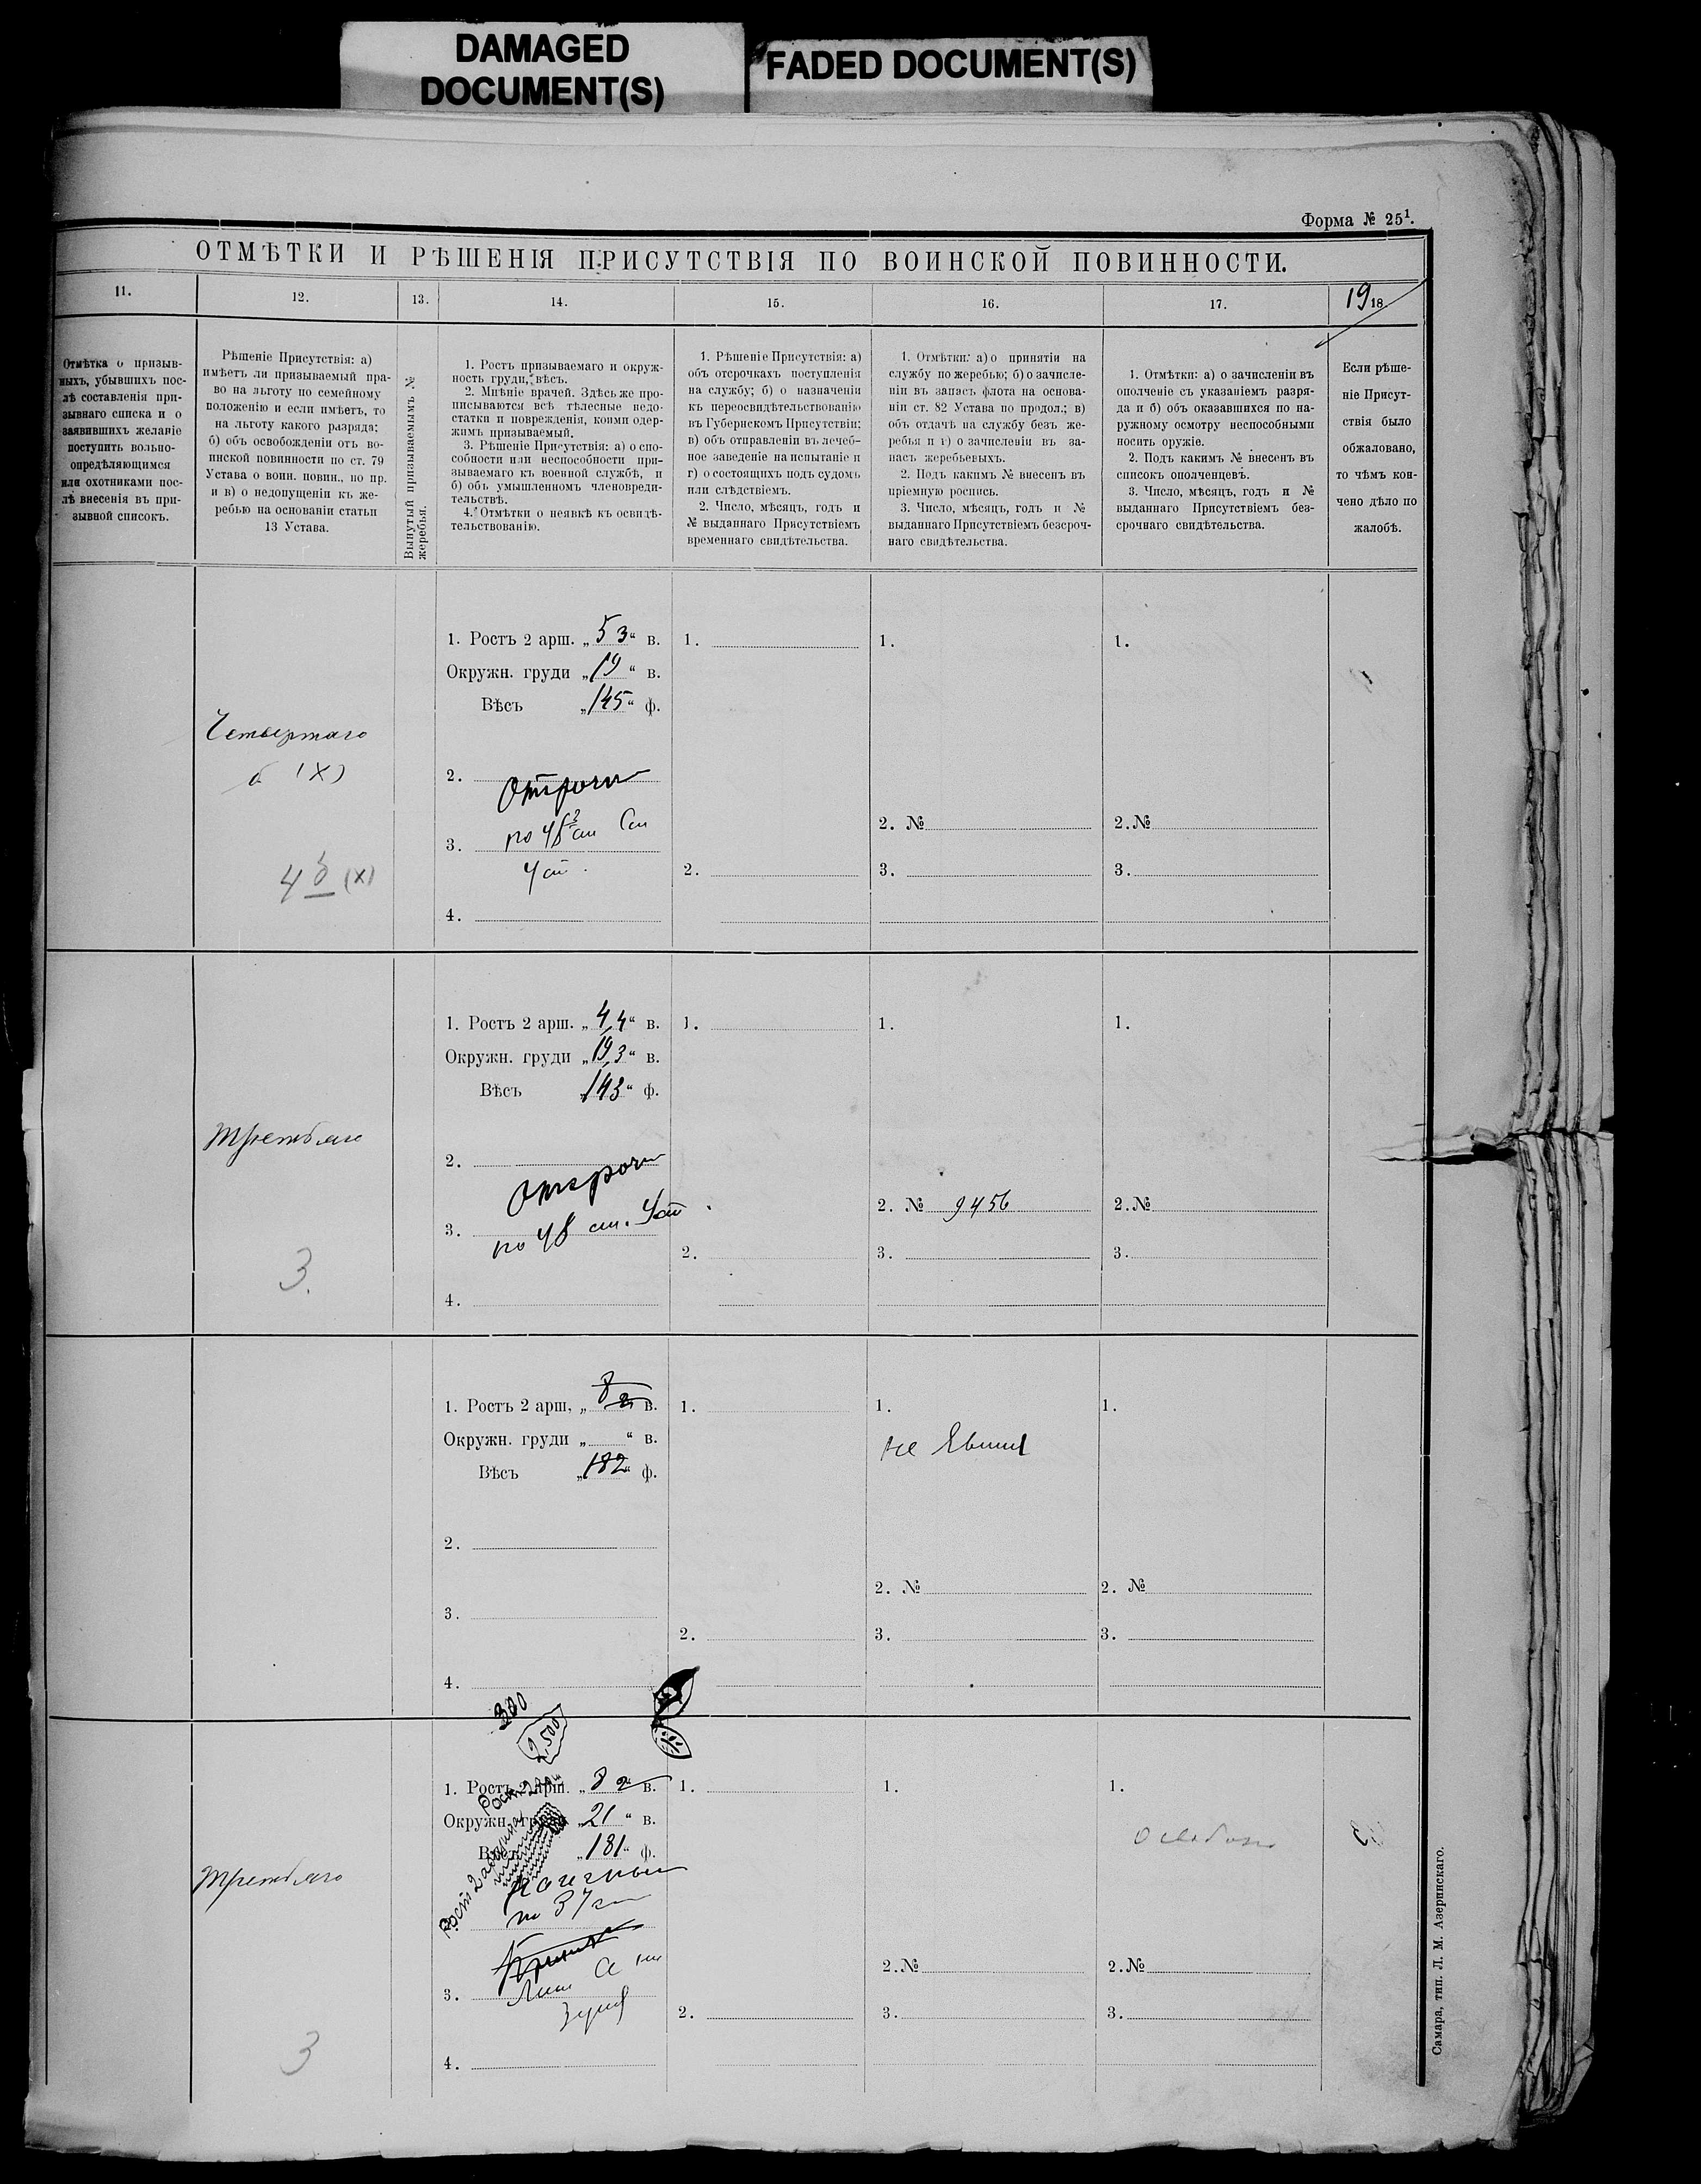 DAMAGED
DOCUMENT(S)
FADED DOCUMENT(S)
Форма № 25¹.
ОТМѢТКИ И РѢШЕНІЯ ПРИСУТСТВІЯ ПО ВОИНСКОЙ ПОВИННОСТИ.
11.
12.
13.
14.
15.
16.
17.
19 18.
Отмѣтка о призыв-
ныхъ, убывшихъ пос-
лѣ составленія при-
зывнаго списка и о
заявившихъ желаніе
поступить вольно-
опредѣляющимся
или охотниками пос-
лѣ внесенія въ при-
зывной списокъ.
Рѣшеніе Присутствія: а)
имѣетъ ли призываемый пра-
во на льготу по семейному
положенію и если имѣетъ, то
на льготу какого разряда;
б) объ освобожденіи отъ во-
инской повинности по ст. 79
Устава о воин. повин., по пр.
и в) о недопущеніи къ же-
ребью на основаніи статьи
13 Устава.
Вынутый призываемымъ №
жеребья.
1. Ростъ призываемаго и окруж-
ность груди, вѣсъ.
2. Мнѣніе врачей. Здѣсь же про-
писываются всѣ тѣлесные недо-
статки и поврежденія, коими одер-
жимъ призываемый.
3. Рѣшеніе Присутствія: а) о спо-
собности или неспособности при-
зываемаго къ военной службѣ, и
б) объ умышленномъ членовреди-
тельствѣ.
4. Отмѣтки о неявкѣ къ освидѣ-
тельствованію.
1. Рѣшеніе Присутствія: а)
объ отсрочкахъ поступленія
на службу; б) о назначеніи
къ переосвидѣтельствованію
въ Губернскомъ Присутствіи;
в) объ отправленіи въ лечеб-
ное заведеніе на испытаніе и
г) о состоящихъ подъ судомъ
или слѣдствіемъ.
2. Число, мѣсяцъ, годъ и
№ выданнаго Присутствіемъ
временнаго свидѣтельства.
1. Отмѣтки: а) о принятіи на
службу по жеребью; б) о зачисле-
ніи въ запасъ флота на основа-
ніи ст. 82 Устава по продол.; в)
объ отдачѣ на службу безъ же-
ребья и г) о зачисленіи въ за-
пасъ жеребьевыхъ.
2. Подъ какимъ № внесенъ въ
пріемную роспись.
3. Число, мѣсяцъ, годъ и №
выданнаго Присутствіемъ безсроч-
наго свидѣтельства.
1. Отмѣтки: а) о зачисленіи въ
ополченіе съ указаніемъ разря-
да и б) объ оказавшихся по на-
ружному осмотру неспособными
носить оружіе.
2. Подъ какимъ № внесенъ въ
списокъ ополченцевъ.
3. Число, мѣсяцъ, годъ и №
выданнаго Присутствіемъ без-
срочнаго свидѣтельства.
Если рѣше-
ніе Присут-
ствія было
обжаловано,
то чѣмъ кон-
чено дѣло по
жалобѣ.
Четвертаго
б (X)
4 б (X)
1. Ростъ 2 арш. „ 5 3 “ в.
Окружн. груди „ 19 “ в.
Вѣсъ „ 145 “ ф.
2.
3. по 48
4.
1.
2.
1.
2. №
3.
1.
2. №
3.
Третьяго
3.
1. Ростъ 2 арш. „ 4,4 “ в.
Окружн. груди „ 19,3 “ в.
Вѣсъ „ 143 “ ф.
2.
3. по 48 ст. Уст
4.
1.
2.
1.
2. № 9456
3.
1.
2. №
3.
1. Ростъ 2 арш. „ 8 2 в.
Окружн. груди „ “ в.
Вѣсъ „ 182 “ ф.
2.
3.
4.
1.
2.
1.
не явился
2. №
3.
1.
2. №
3.
2,500
Третьяго
3
1. Ростъ 2 арш. „ 8 2 в.
Окружн. груди „ 21 “ в.
Вѣсъ „ 181 “ ф.
по 37
3.
4.
1.
2.
1.
2. №
3.
1.
2. №
3.
Самара, тип. Л. М. Азеринскаго.